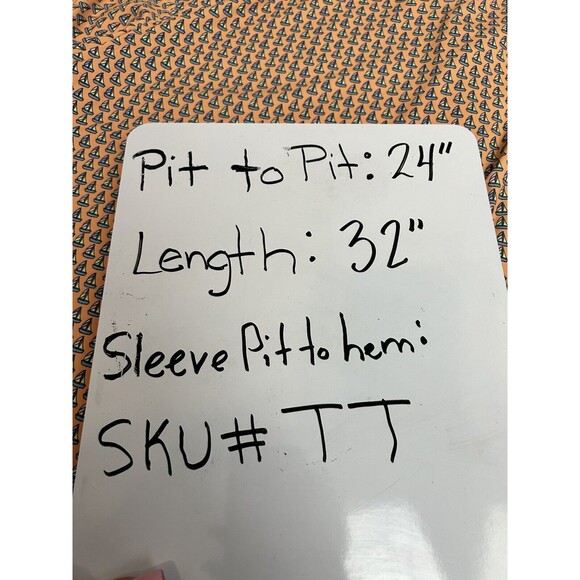 Pit to Pit: 24"
Length: 32"
Sleeve Pit to hem:
SKU# TT